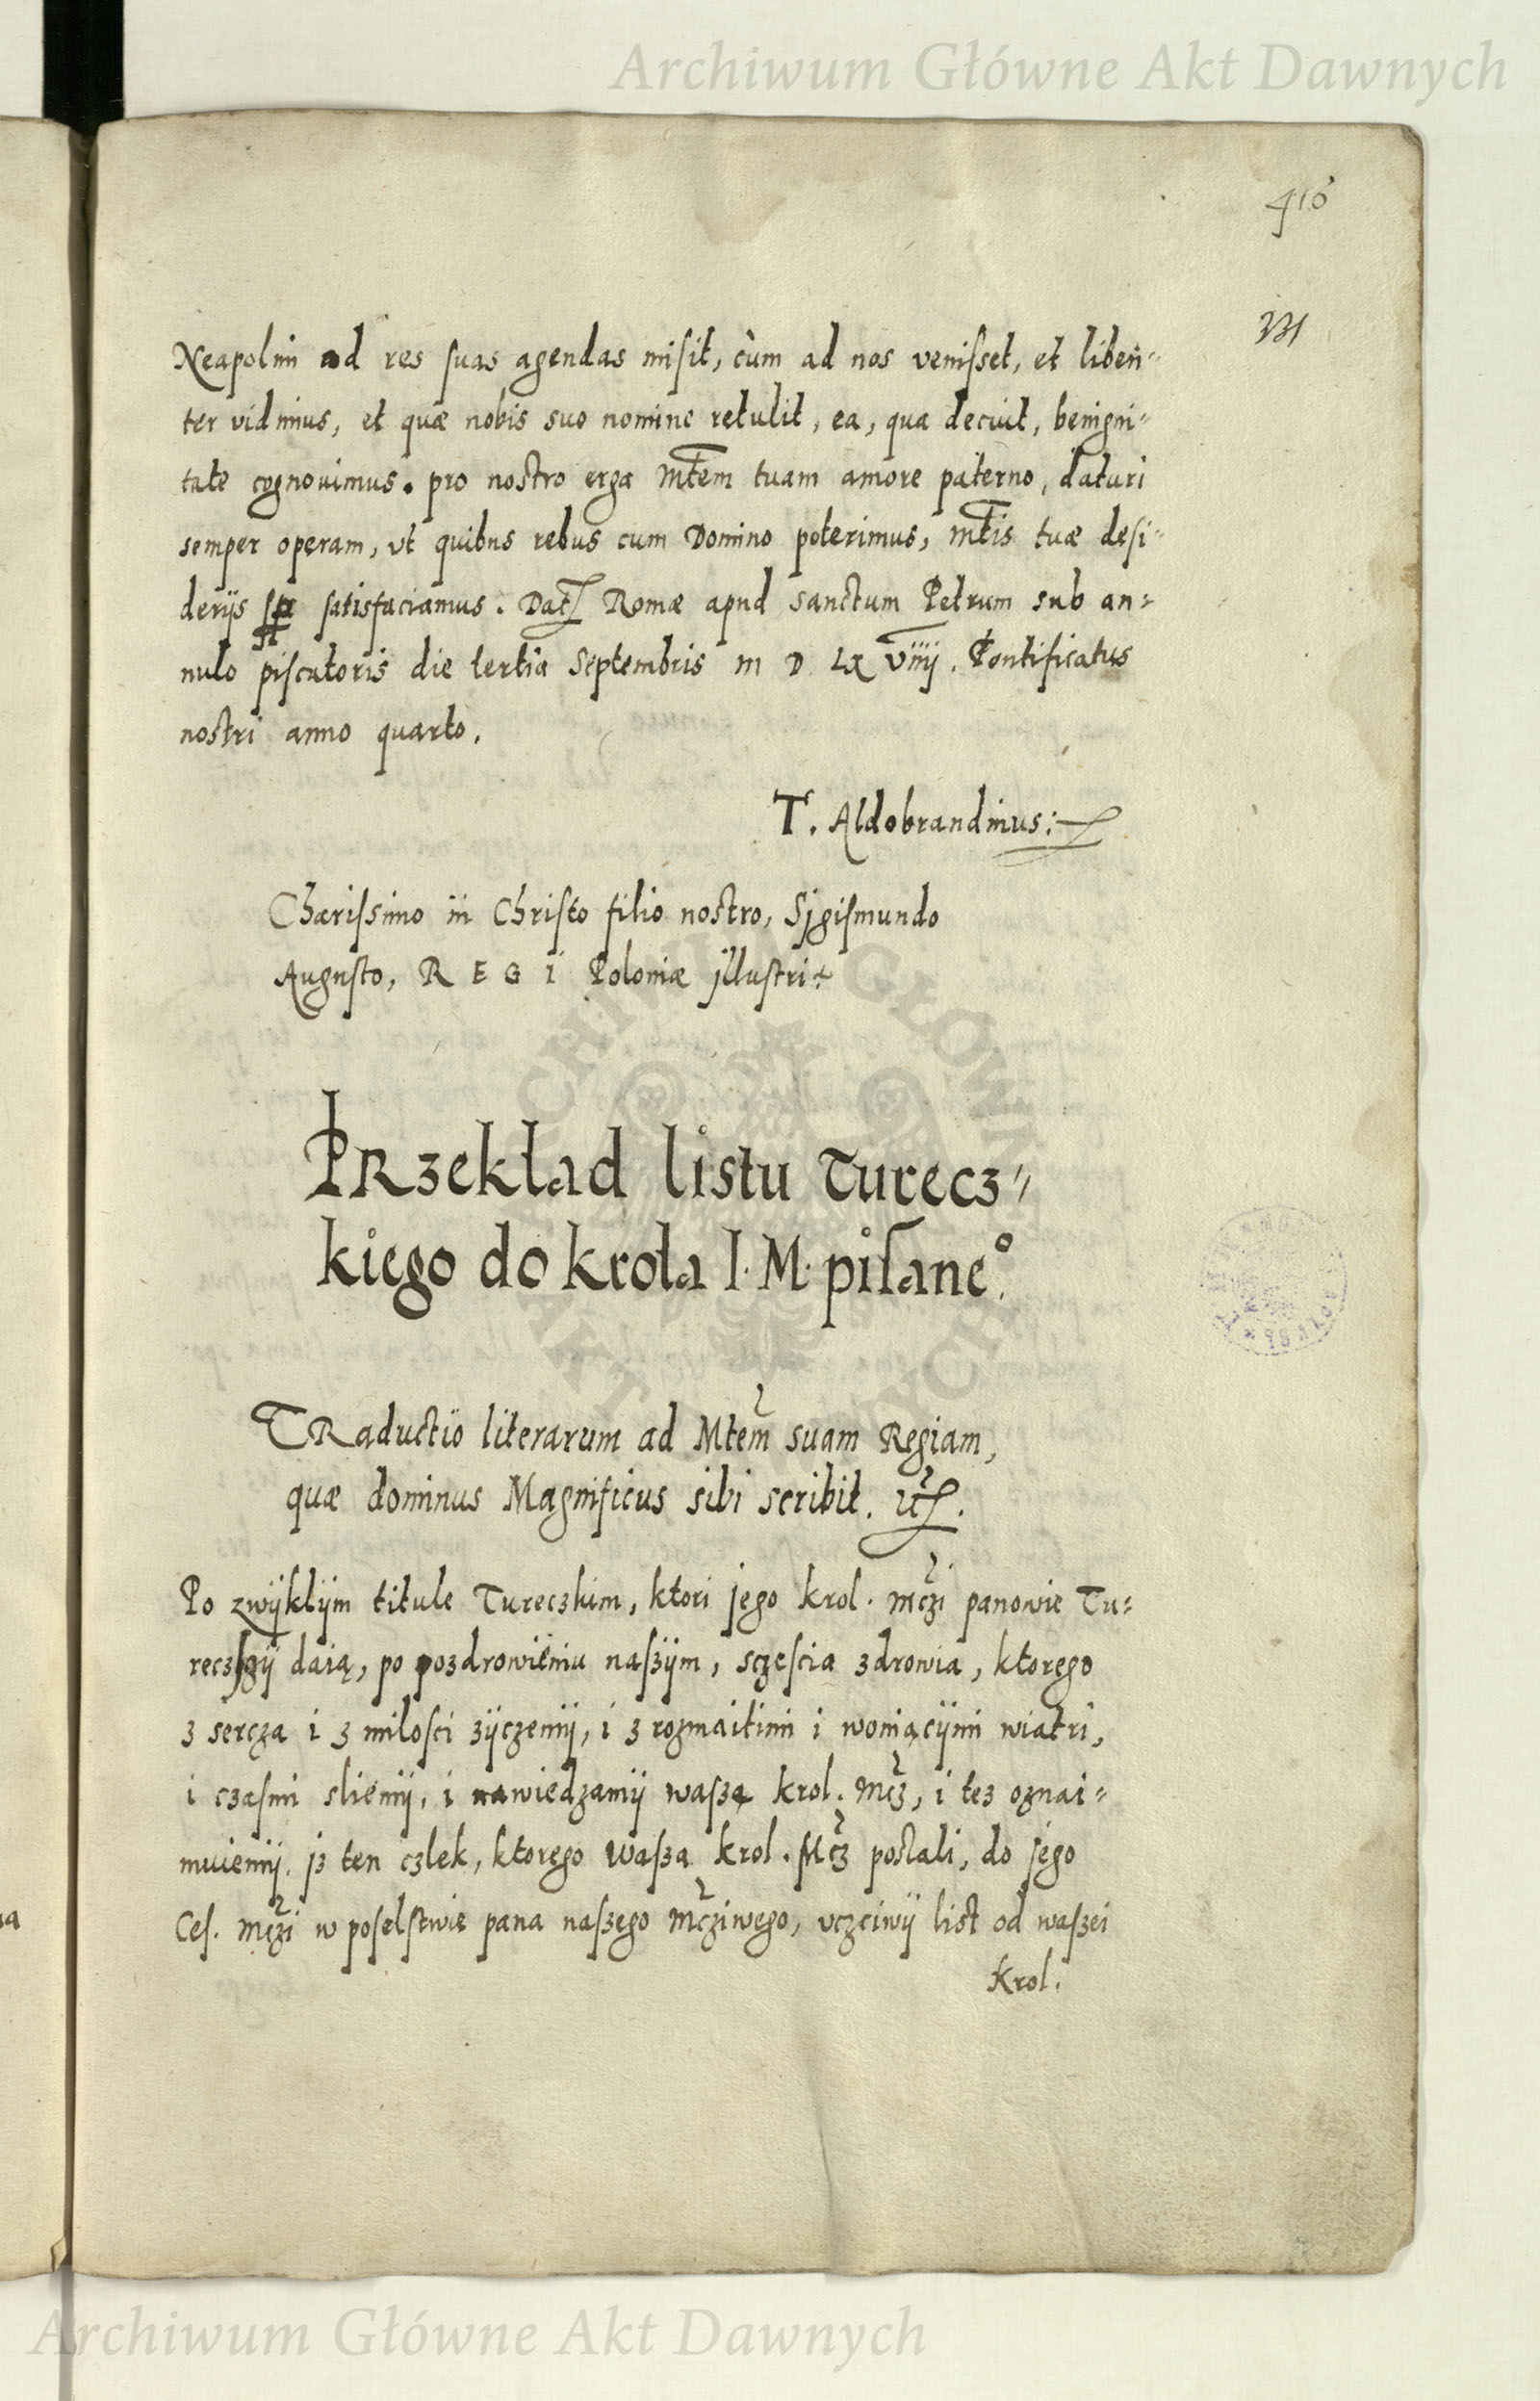 Archiwum Główne Akt Dawnych
416
Neapolim ad res suas agendas misit, cùm ad nos venisset, et liben⸗
ter vidimus, et quæ nobis suo nomine retulit, ea, qua decuit, benigni⸗
tate cognouimus. pro nostro erga Mtem tuam amore paterno, daturi
semper operam, vt quibus rebus cum Domino poterimus, Mtis tuæ desi⸗
derijs satisfaciamus. Dat Romæ apud sanctum Petrum sub an⸗
nulo piscatoris die tertia Septembris M D LX Viiij. Pontificatus
nostri anno quarto.
T. Aldobrandinus:
Charissimo in Christo filio nostro, Sigismundo
Augusto, REGI Poloniæ jllustri
PRzekład listu Turecz⸗
kiego do krola I. M. pisane°.
TRaductio literarum ad Mtem suam Regiam,
quæ dominus Magnificus sibi scribit. etc.
Po zwÿklÿm titule Tureczkim, ktori jego krol. Mczi panowie Tu⸗
reczszÿ daią, po pozdrowieniu naszÿm, sczescia zdrowia, ktorego
z sercza i z milosci zÿczemÿ, i z rozmaitimi i woniącÿmi wiatri,
i czasmi sliemÿ, i nawiedzamÿ waszą krol. Mcz, i tez oznai⸗
muiemÿ. jz ten czlek, ktorego wasza krol. Mcz poslali, do jego
Ces. Mczi w poselstwie pana naszego Mcziwego, vczciwÿ list od waszei
krol.
Archiwum Główne Akt Dawnych